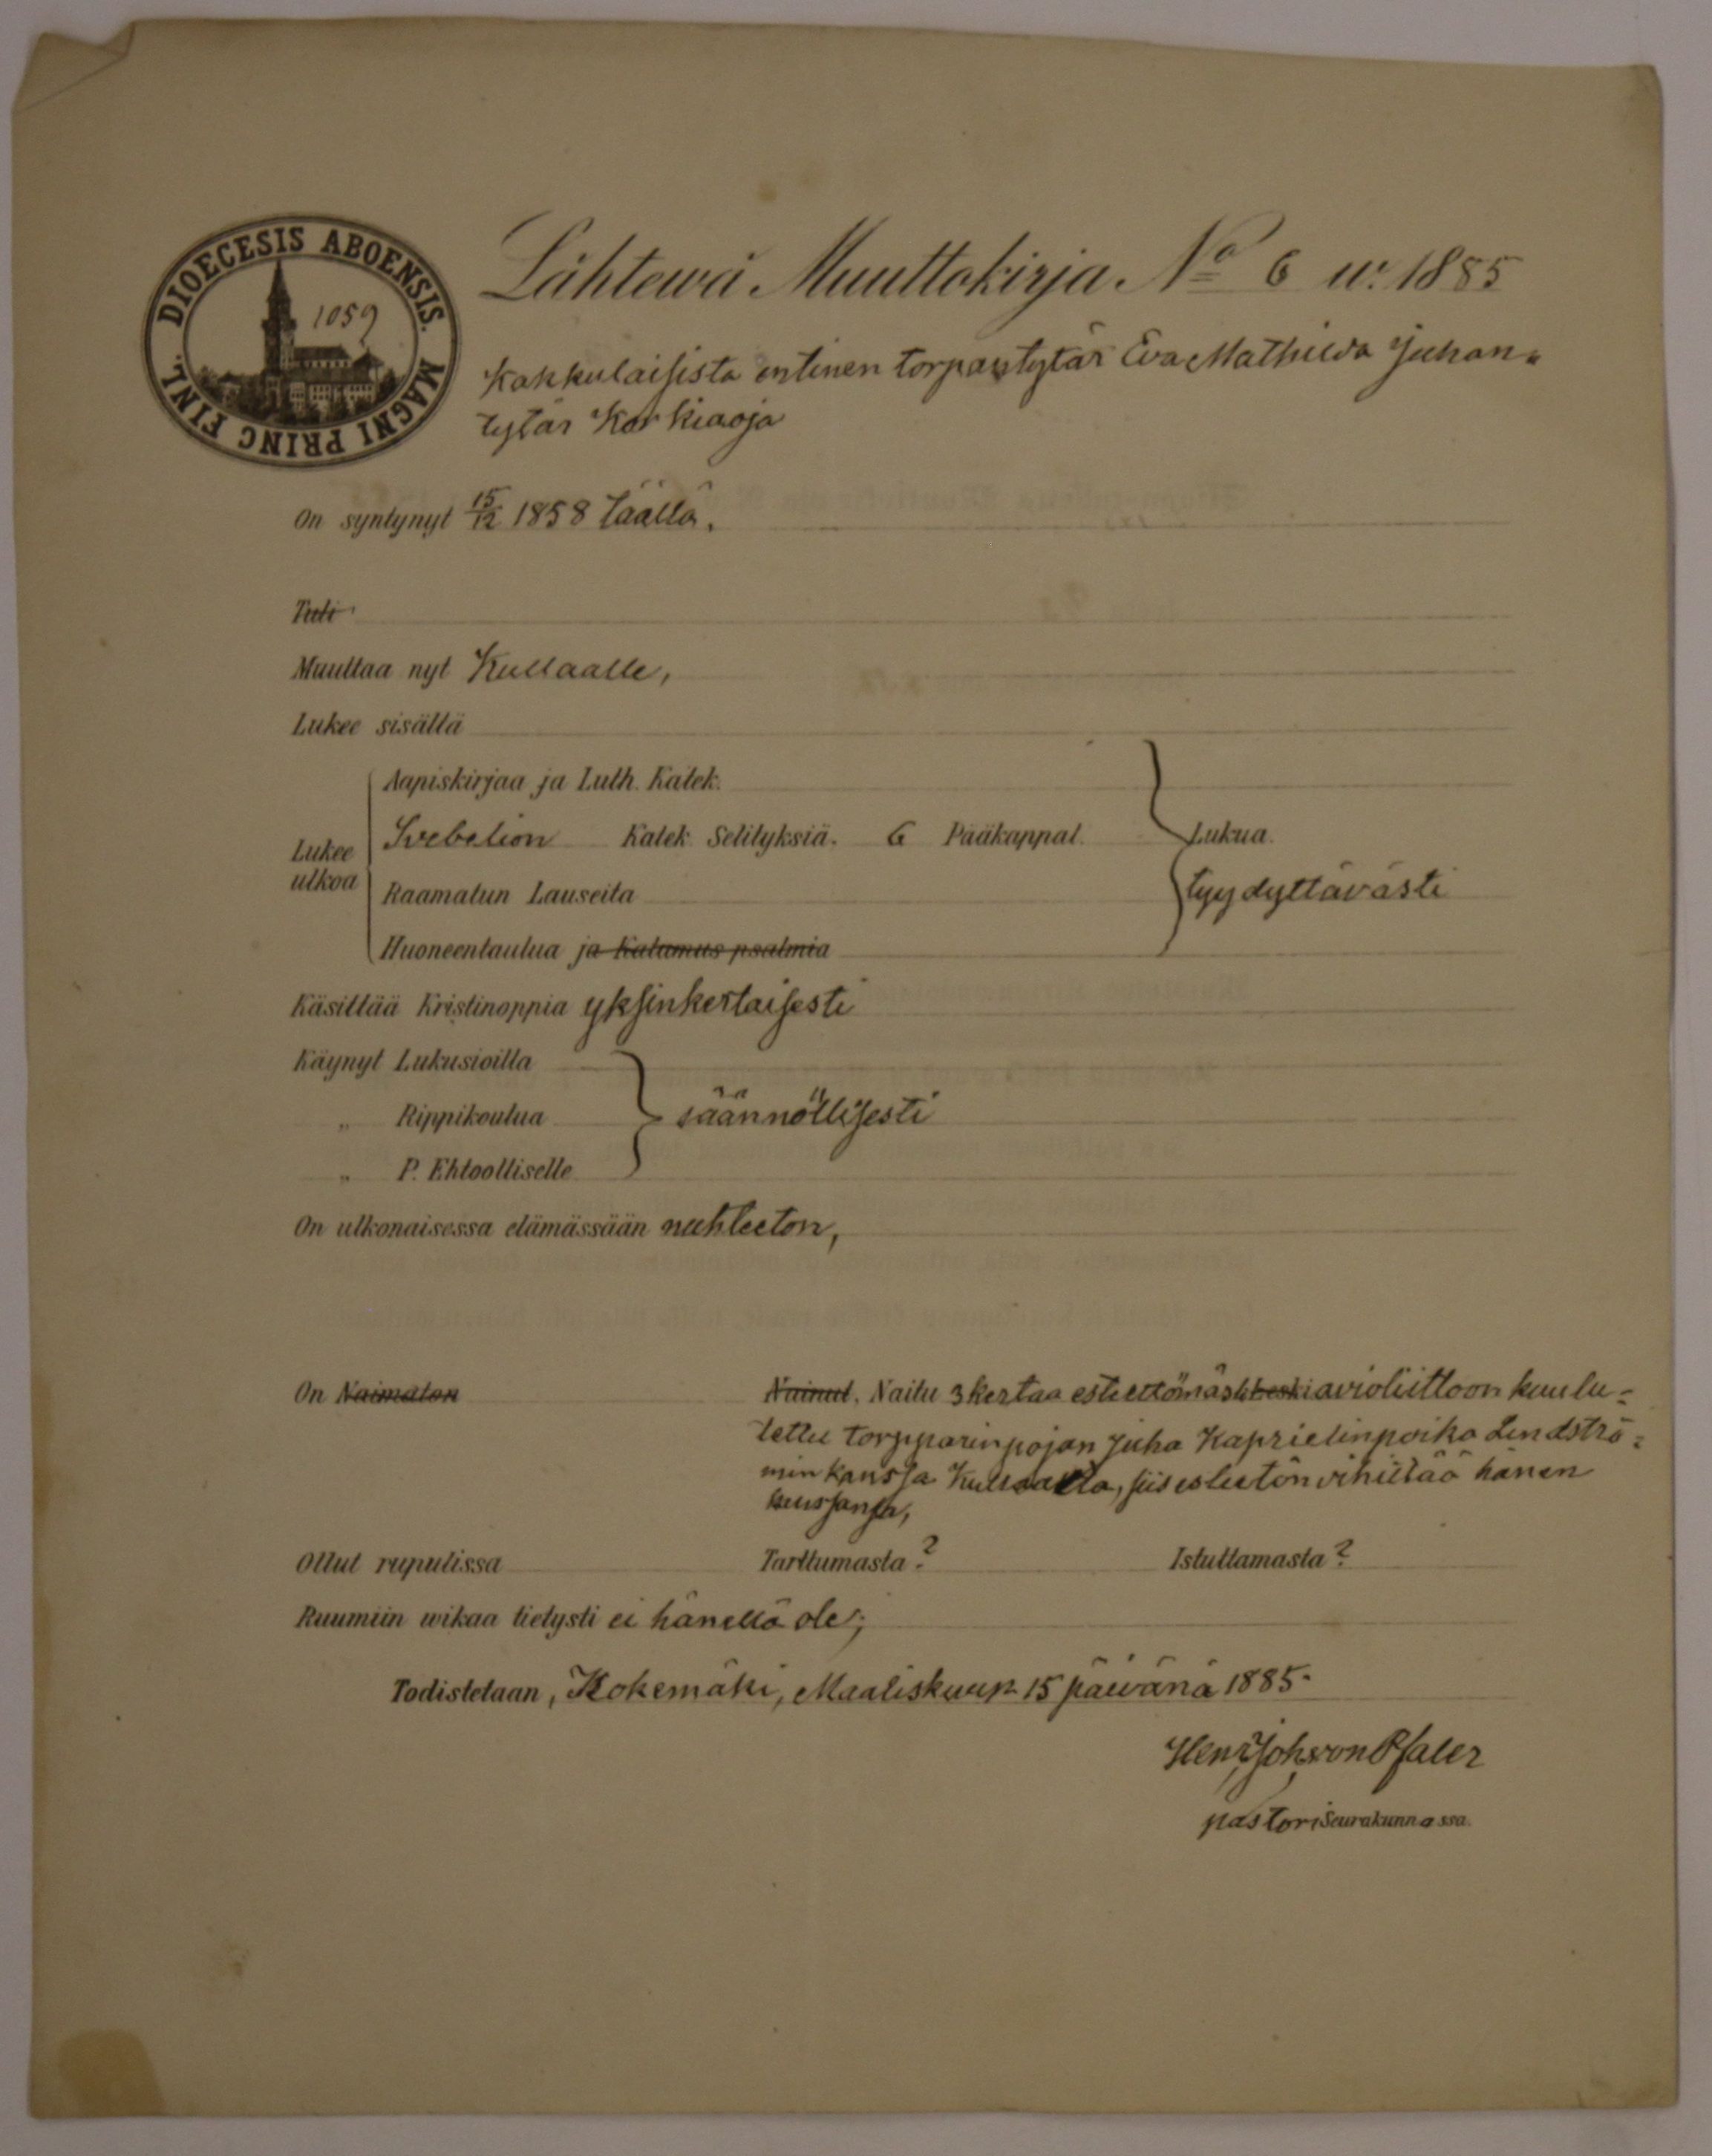 DIOECESIS ABOENSIS. MAGNI PRINC FINL.
1059
Lähtewä Muuttokirja No 6 w. 1885
Kakkulaisista entinen torpantytär Eva Mathilda Juhan-
tytär Korkiaoja
On syntynyt 15/12 1858 täällä.
Tuli
Muuttaa nyt Kullaalle,
Lukee sisältä
Aapiskirjaa ja Luth. Katek.
Lukee ulkoa
Svebelion Katek Selityksiä. 6 Pääkappal.
Lukua.
Raamatun Lauseita
tyydyttävästi
Huoneentaulua ja Katumus psalmia
Käsittää Kristinoppia yksinkertaisesti
Käynyt Lukusioilla
„ Rippikoulua säännöllisesti
„ P. Ehtoolliselle
On ulkonaisessa elämässään nuhteeton,
On Naimaton Nainut. Naitu 3 kertaa esteettömästi avioliittoon kuulu-
tettu torpparinpojan Juha Kaprielinpoika Lindströ-
min kanssa Kullaalta, siis esteetön vihittää hänen
kanssansa,
Ollut rupulissa Tarttumasta? Istuttamasta?
Ruumiin wikaa tietysti ei hänellä ole;
Todistetaan, Kokemäki, Maaliskuun 15 päivänä 1885.
Henr Joh von Pfaler
pastori Seurakunnassa.